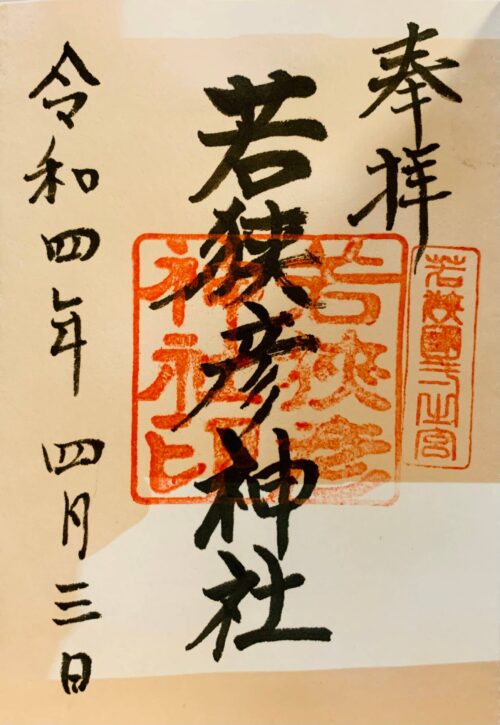 奉拝
若狭國一之宮
若狭彦神社
若狭彦
神社印
令和四年 四月三日